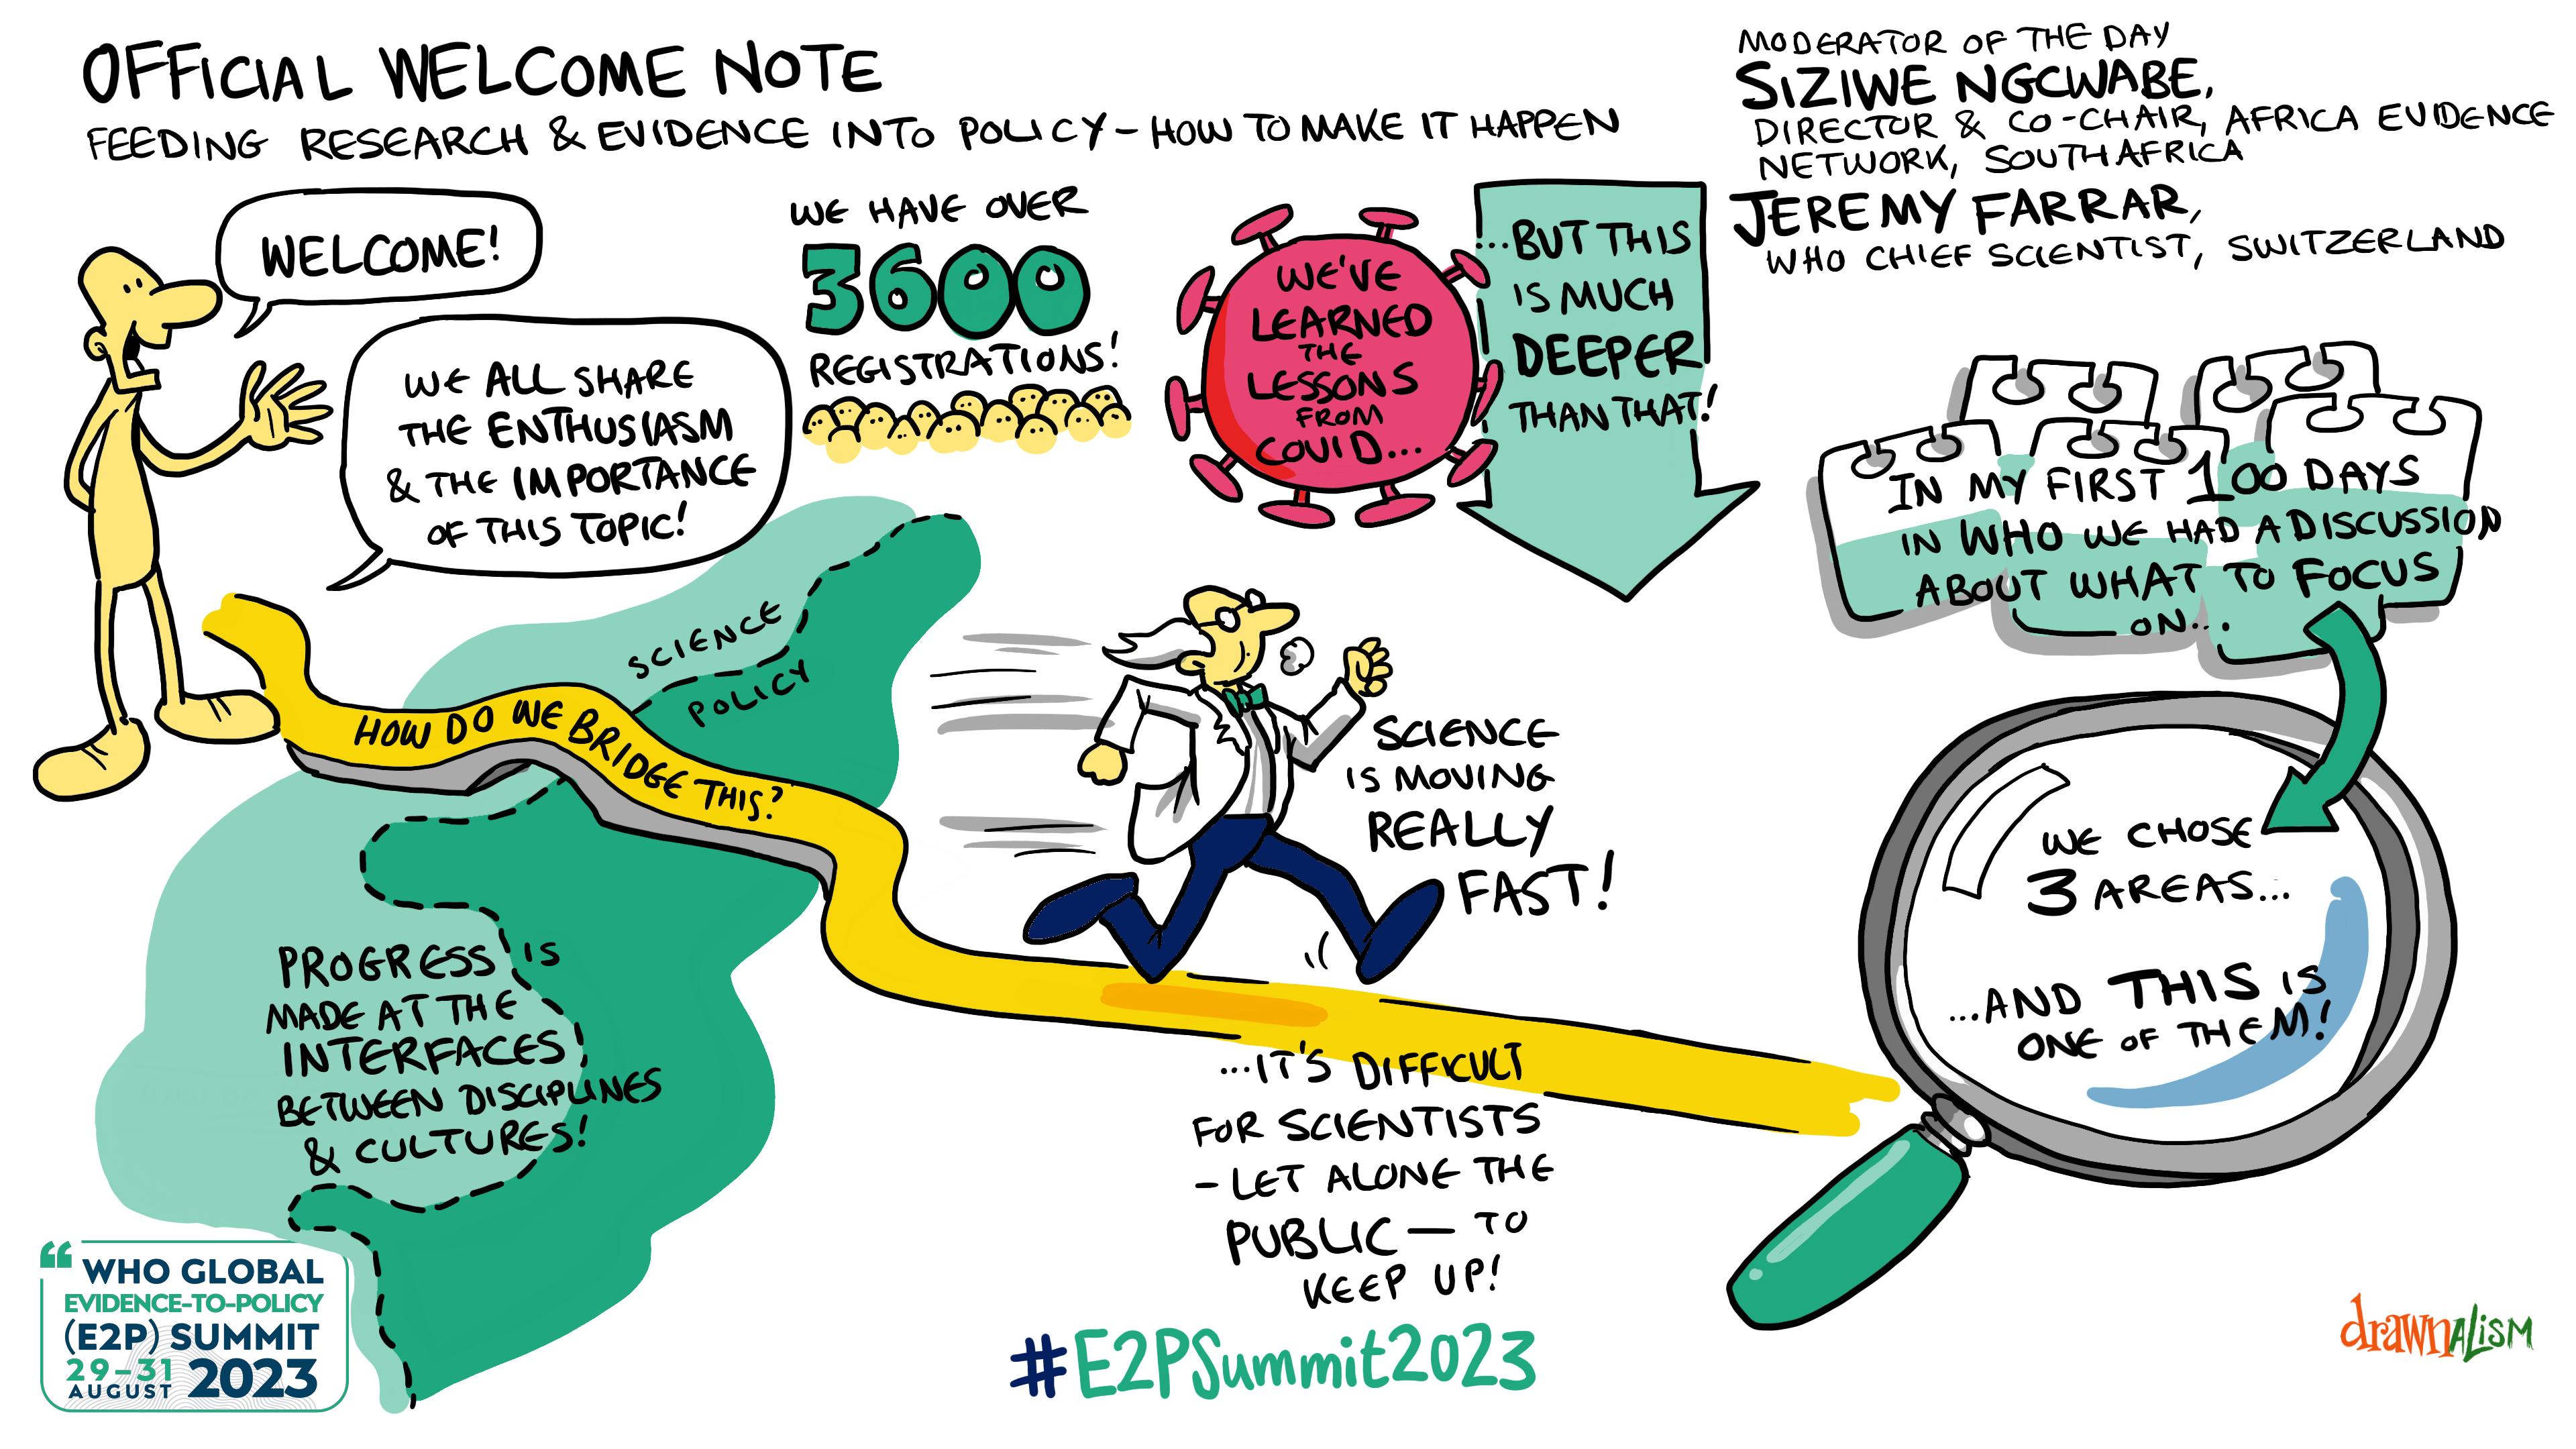 OFFICIAL WELCOME NOTE
FEEDING RESEARCH & EVIDENCE INTO POLICY – HOW TO MAKE IT HAPPEN
MODERATOR OF THE DAY
SIZIWE NGCWABE,
DIRECTOR & CO-CHAIR, AFRICA EVIDENCE
NETWORK, SOUTH AFRICA
JEREMY FARRAR,
WHO CHIEF SCIENTIST, SWITZERLAND
WELCOME!
WE ALL SHARE
THE ENTHUSIASM
& THE IMPORTANCE
OF THIS TOPIC!
WE HAVE OVER
3600
REGISTRATIONS!
WE'VE
LEARNED
THE
LESSONS
FROM
COVID...
...BUT THIS
IS MUCH
DEEPER
THAN THAT!
IN MY FIRST 100 DAYS
IN WHO WE HAD A DISCUSSION
ABOUT WHAT TO FOCUS
ON...
WE CHOSE
3 AREAS...
...AND THIS IS
ONE OF THEM!
SCIENCE
POLICY
HOW DO WE BRIDGE THIS?
SCIENCE
IS MOVING
REALLY
FAST!
...IT'S DIFFICULT
FOR SCIENTISTS
– LET ALONE THE
PUBLIC – TO
KEEP UP!
PROGRESS IS
MADE AT THE
INTERFACES
BETWEEN DISCIPLINES
& CULTURES!
“ WHO GLOBAL
EVIDENCE-TO-POLICY
(E2P) SUMMIT
29–31
AUGUST 2023
#E2PSummit2023
drawnalism